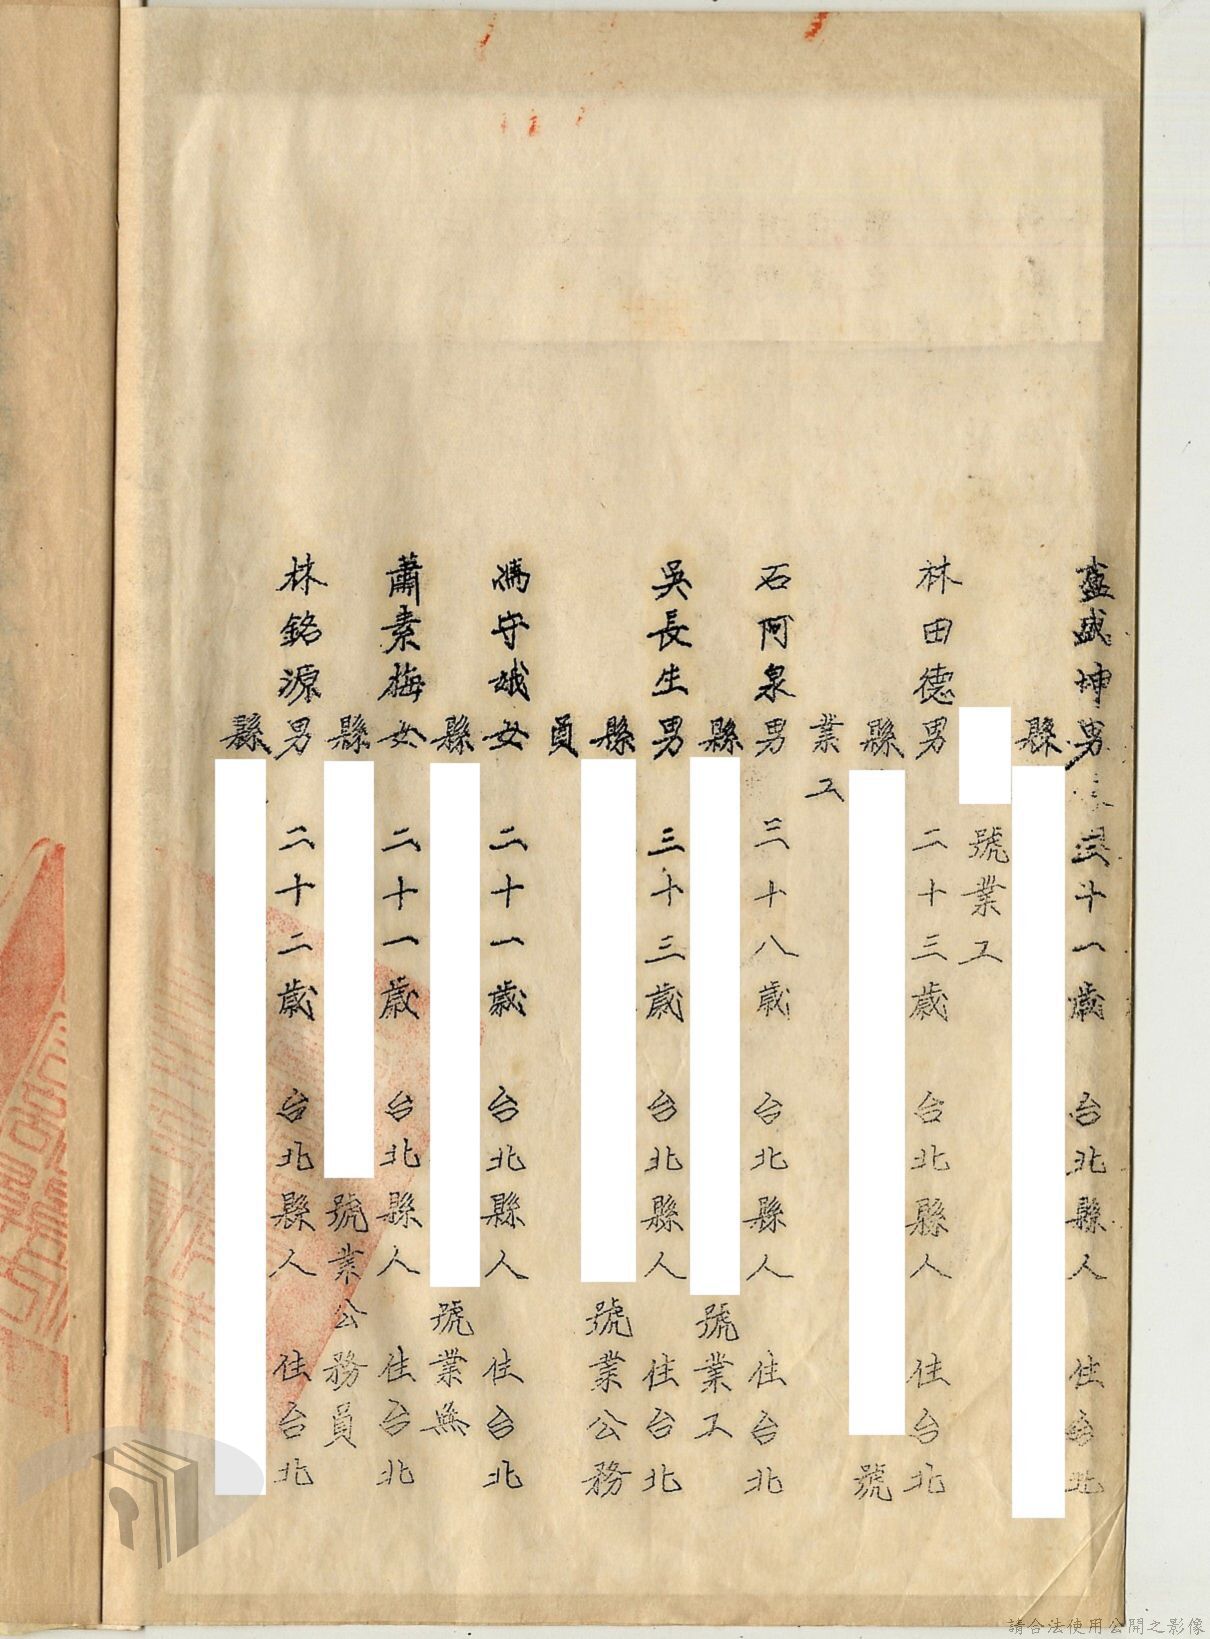 盧盛坤男 三十一歲 台北縣人 住台北
縣
號業工
林田德男 二十三歲 台北縣人 住台北
縣 號
業工
石阿泉男 三十八歲 台北縣人 住台北
縣 號業工
吳長生男 三十三歲 台北縣人 住台北
縣 號業公務
員
馮守娥女 二十一歲 台北縣人 住台北
縣 號業無
蕭素梅女 二十一歲 台北縣人 住台北
縣 號業公務員
林銘源男 二十二歲 台北縣人 住台北
縣
請合法使用公開之影像